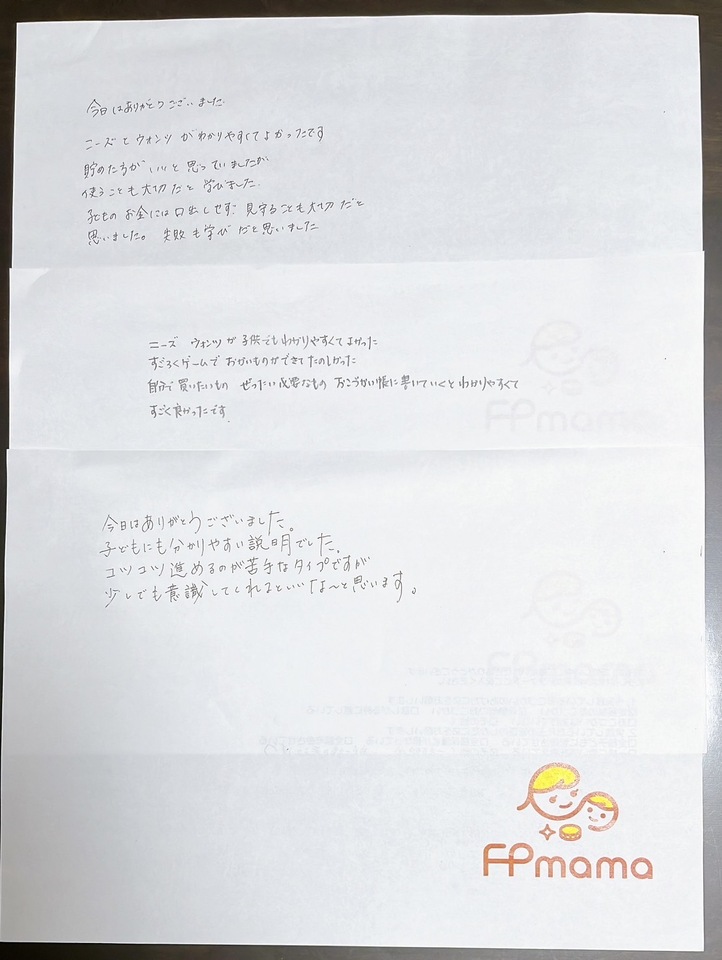 今日はありがとうございました。
ニーズとウォンツがわかりやすくてよかったです
貯めた方がいいと思っていましたが
使うことも大切だと学びました。
子どものお金には口出しせず見守ることも大切だと
思いました。失敗も学びだと思いました
ニーズ ウォンツが子供でもわかりやすくてよかった
すごろくゲームでおかいものができてたのしかった
自分で買いたいもの ぜったい必要なもの おこづかい帳に書いていくとわかりやすくて
すごく良かったです。
今日はありがとうございました。
子どもにも分かりやすい説明でした。
コツコツ進めるのが苦手なタイプですが
少しでも意識してくれるといいな〜と思います。
FPmama